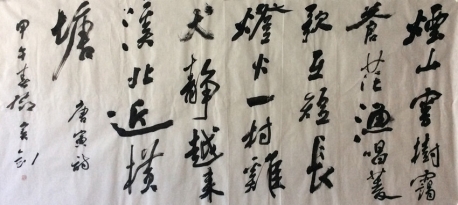 烟山雲樹靄
蒼茫漁唱菱
歌互短長
燈火一村雞
犬靜越来
溪北近横
塘
唐寅詩
甲午春